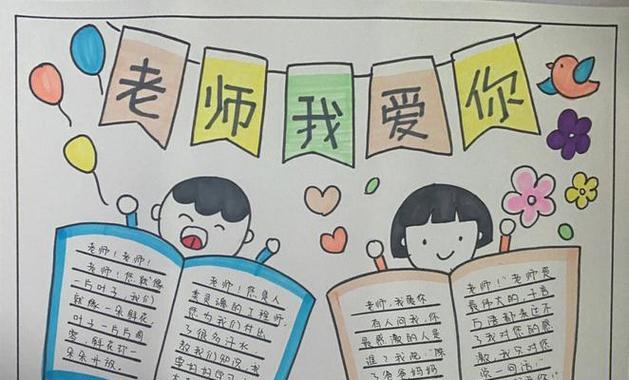 老师我爱你
老师！老师！
老师！您就像
一片叶子，我们
就像一朵鲜花
叶子一片片凋
零，鲜花却一
朵朵开放。
老师！您是人
类灵魂的工程师，
您为我们付出
了很多汗水
教我们知识，
老师，我爱你
有人问我，你
最感激的人是
谁？我说，除
了爸爸妈妈
老师！老师是
最伟大的，千言
万语都表达不
了我对您的感
激，我只对您
说一句话：